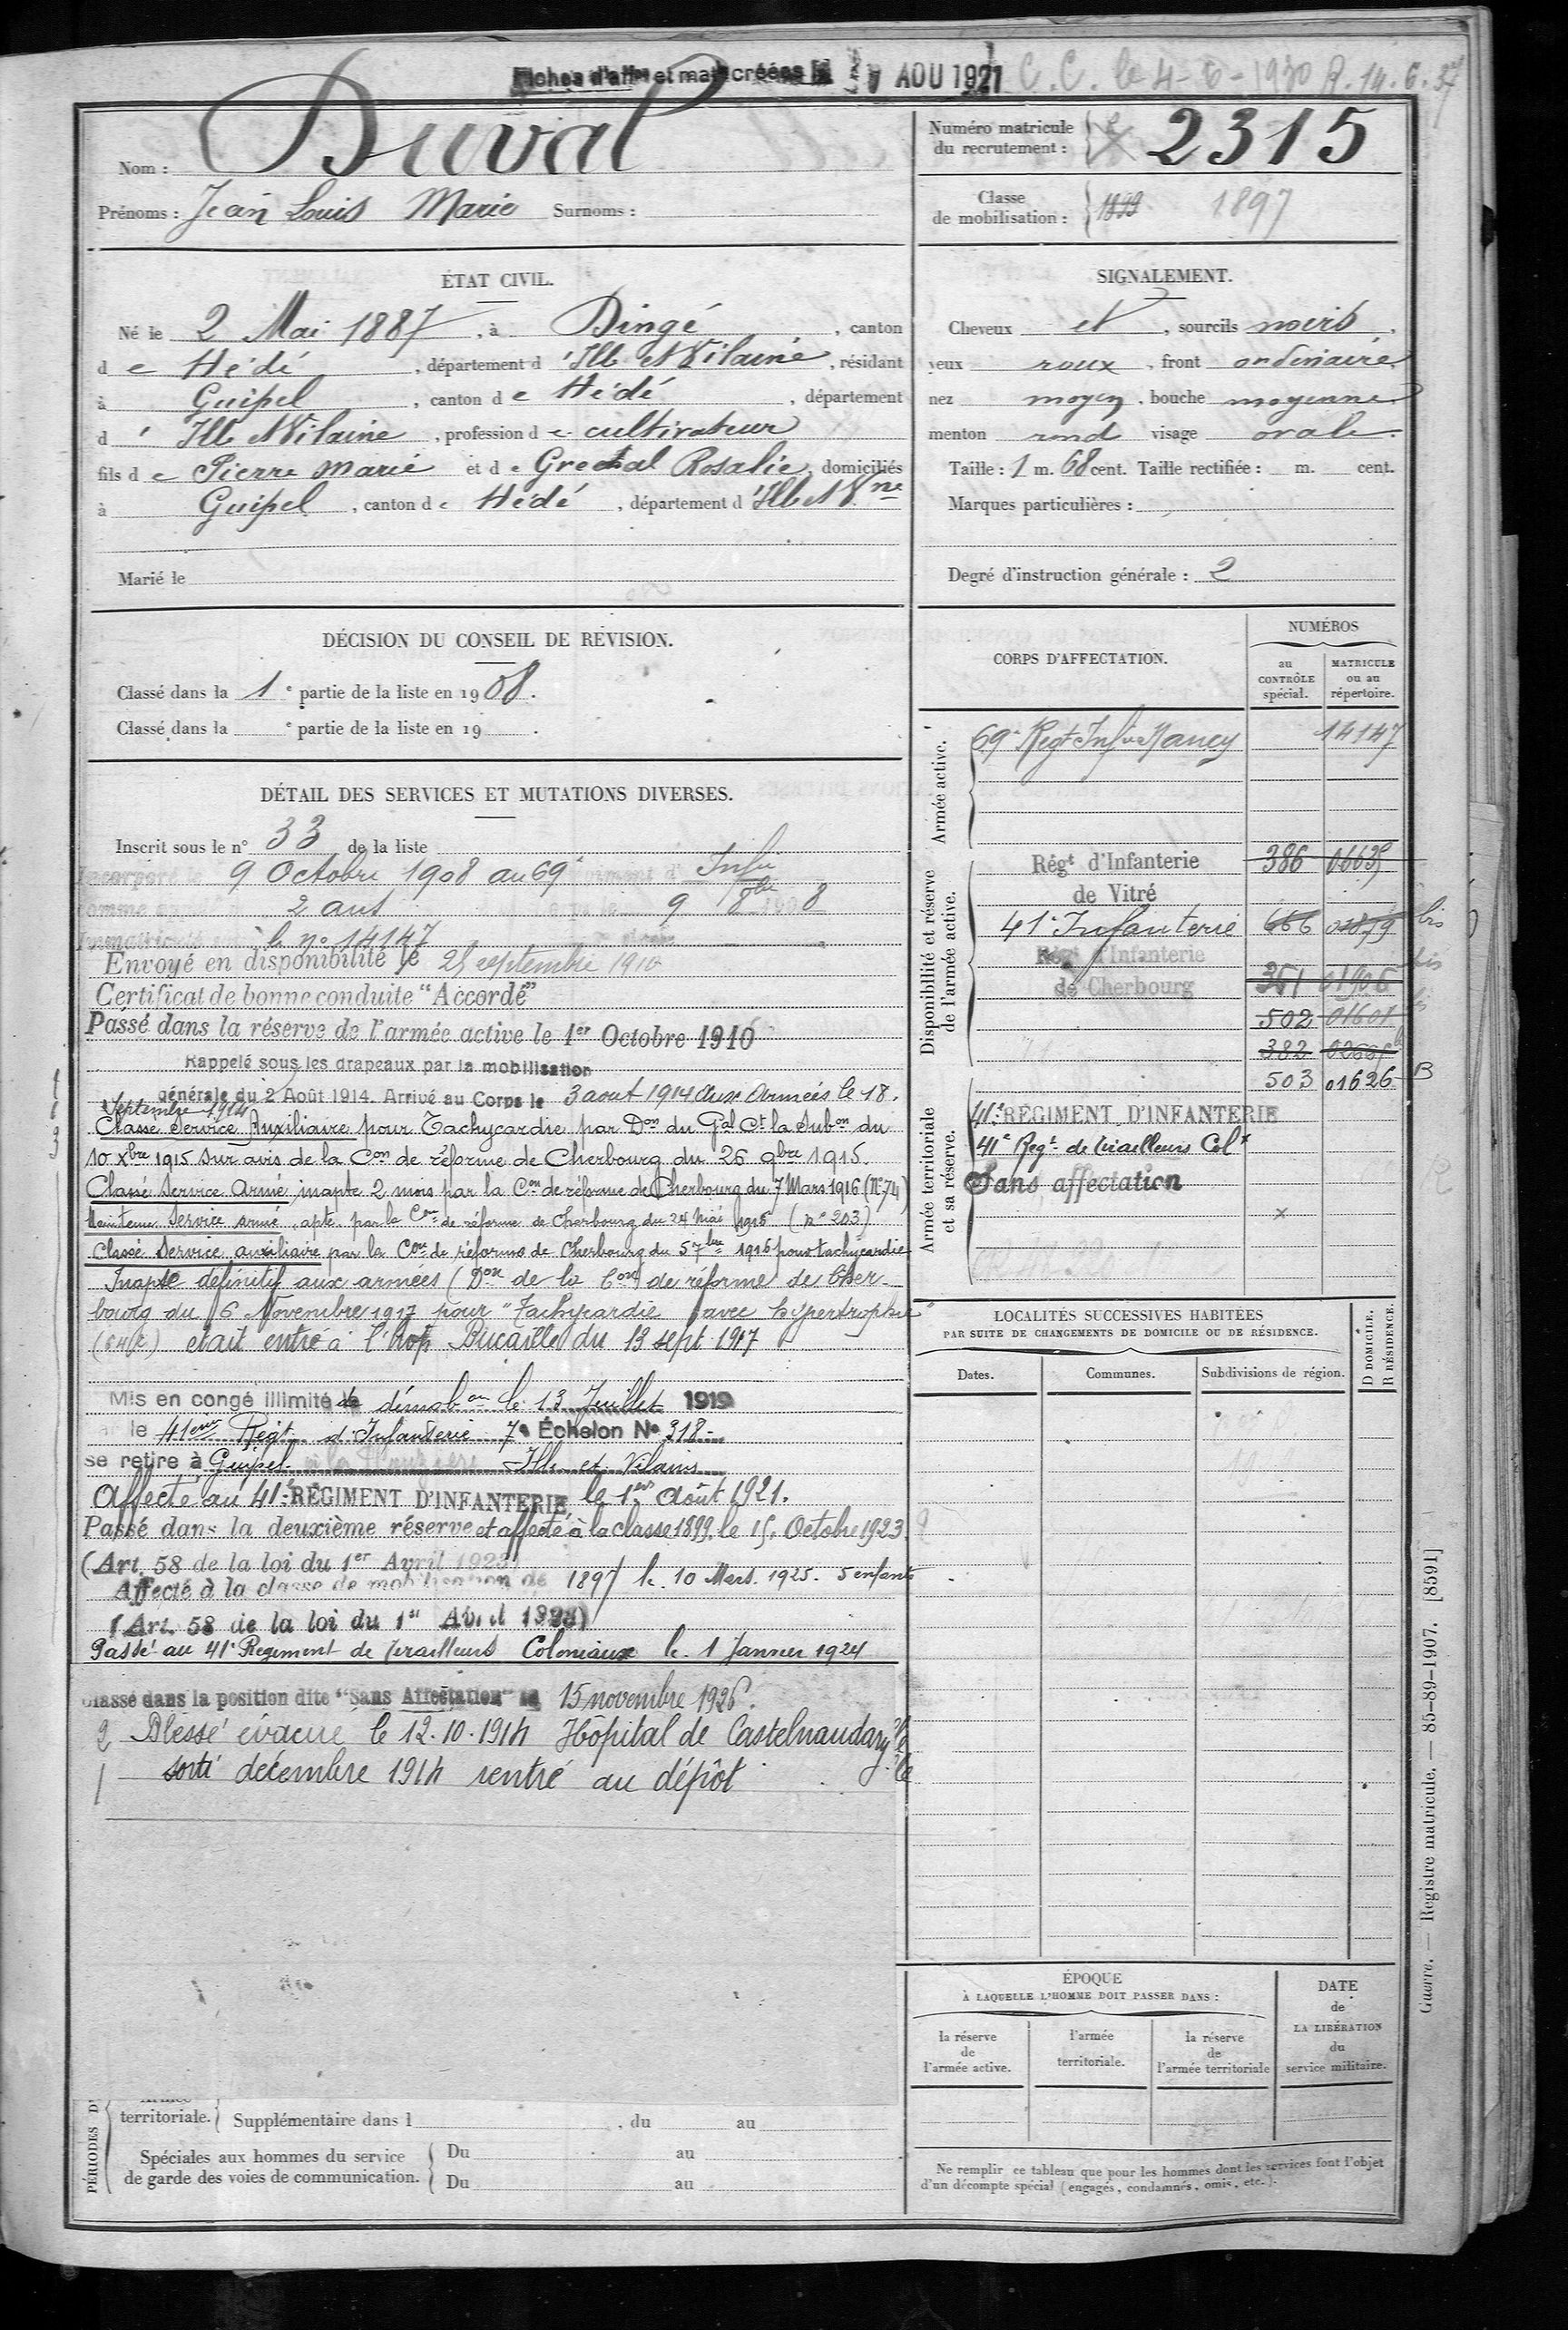 Fiches d'affon et mat creées le AOU 1921 C.C. le 4-6-1930 R. 14.6.37
Nom : Duval
Prénoms : Jean Louis Marie Surnoms :
Numéro matricule du recrutement : 2315
Classe de mobilisation : 1899 1897
ÉTAT CIVIL.
Né le 2 Mai 1887, à Dingé, canton
de Hédé, département d'Ille & Vilaine, résidant
à Guipel, canton de Hédé, département
d'Ille & Vilaine, profession de cultivateur
fils de Pierre Marie et de Grechal Rosalie, domiciliés
à Guipel, canton de Hédé, département d'Ille & Vne
Marié le
SIGNALEMENT.
Cheveux et, sourcils noirs,
yeux roux, front ordinaire
nez moyen, bouche moyenne
menton rond visage ovale.
Taille : 1 m. 68 cent. Taille rectifiée : m. cent.
Marques particulières :
Degré d'instruction générale : 2
DÉCISION DU CONSEIL DE RÉVISION.
Classé dans la 1e partie de la liste en 1908.
Classé dans la e partie de la liste en 19 .
DÉTAIL DES SERVICES ET MUTATIONS DIVERSES.
Inscrit sous le n° 33 de la liste
Incorporé le 9 Octobre 1908 au 69e Régiment d' Infie
2 ans 9 8bre 1908
le n° 14147
Envoyé en disponibilité le 25 septembre 1910
Certificat de bonne conduite "Accordé"
Passé dans la réserve de l'armée active le 1er Octobre 1910
Rappelé sous les drapeaux par la mobilisation
générale du 2 Août 1914. Arrivé au Corps le 3 aout 1914 Aux Armées le 18.
Septembre 1914
Classé Service Auxiliaire pour Tachycardie par Don du Gal Ct la Subon du
10 Xbre 1915 sur avis de la Con de réforme de Cherbourg du 26 9bre 1915.
Classé Service Armé inapte 2 mois par la Con de réforme de Cherbourg du 7 Mars 1916 (N° 74)
Maintenu Service armé, apte par la Con de réforme de Cherbourg du 24 Mai 1916 (n° 203)
Classé Service auxiliaire par la Con de réforme de Cherbourg du 5 7bre 1916 pour tachycardie
Inapte définitif aux armées (Don de la Con de réforme de Cher-
bourg du 6 Novembre 1917 pour "Tachycardie avec hypertrophie"
était entré à l'hop Bucaille du 13 sept 1917
Mis en congé illimité de démobon le 13 Juillet 1919
par le 41eme Régt d'Infanterie 7e Échelon N° 318
se retire à Guipel Ille et Vilaine
Affecté au 41e RÉGIMENT D'INFANTERIE le 1er Août 1921.
Passé dans la deuxième réserve et affecté à la classe 1899 le 15 Octobre 1923
(Art. 58 de la loi du 1er Avril 1923)
Affecté à la classe de mobilisation de 1897 le 10 Mars 1925. 5 enfants
(Art. 58 de la loi du 1er Avril 1923)
Passé au 41e Régiment de tirailleurs Coloniaux le 1 Janvier 1924
Classé dans la position dite "Sans Affectation" le 15 novembre 1926.
Blessé évacué le 12.10.1914 Hôpital de Castelnaudary
sorti décembre 1914 rentré au dépôt
CORPS D'AFFECTATION.
NUMÉROS
au CONTRÔLE spécial.
MATRICULE ou au répertoire.
Armée active.
69e Regt Infie Nancy 14147
Disponibilité et réserve de l'armée active.
Régt d'Infanterie 386 06635
de Vitré
41e Infanterie 666 02879 bis
Régt d'Infanterie
de Cherbourg 351 01906 bis
502 01601 bis
382
503 01626 B
Armée territoriale et sa réserve.
41e RÉGIMENT D'INFANTERIE
41e Regt de tirailleurs Colx
Sans affectation
LOCALITÉS SUCCESSIVES HABITÉES
PAR SUITE DE CHANGEMENTS DE DOMICILE OU DE RÉSIDENCE.
Dates.
Communes.
Subdivisions de région.
D DOMICILE.
R RÉSIDENCE.
ÉPOQUE
À LAQUELLE L'HOMME DOIT PASSER DANS :
la réserve de l'armée active.
l'armée territoriale.
la réserve de l'armée territoriale
DATE de LA LIBÉRATION du service militaire.
Ne remplir ce tableau que pour les hommes dont les services font l'objet
d'un décompte spécial (engagés, condamnés, omis, etc.).
PÉRIODES D'
Armée territoriale. Supplémentaire dans l , du au
Spéciales aux hommes du service de garde des voies de communication.
Du au
Du au
Guerre. — Registre matricule. — 85-89-1907. [8591]